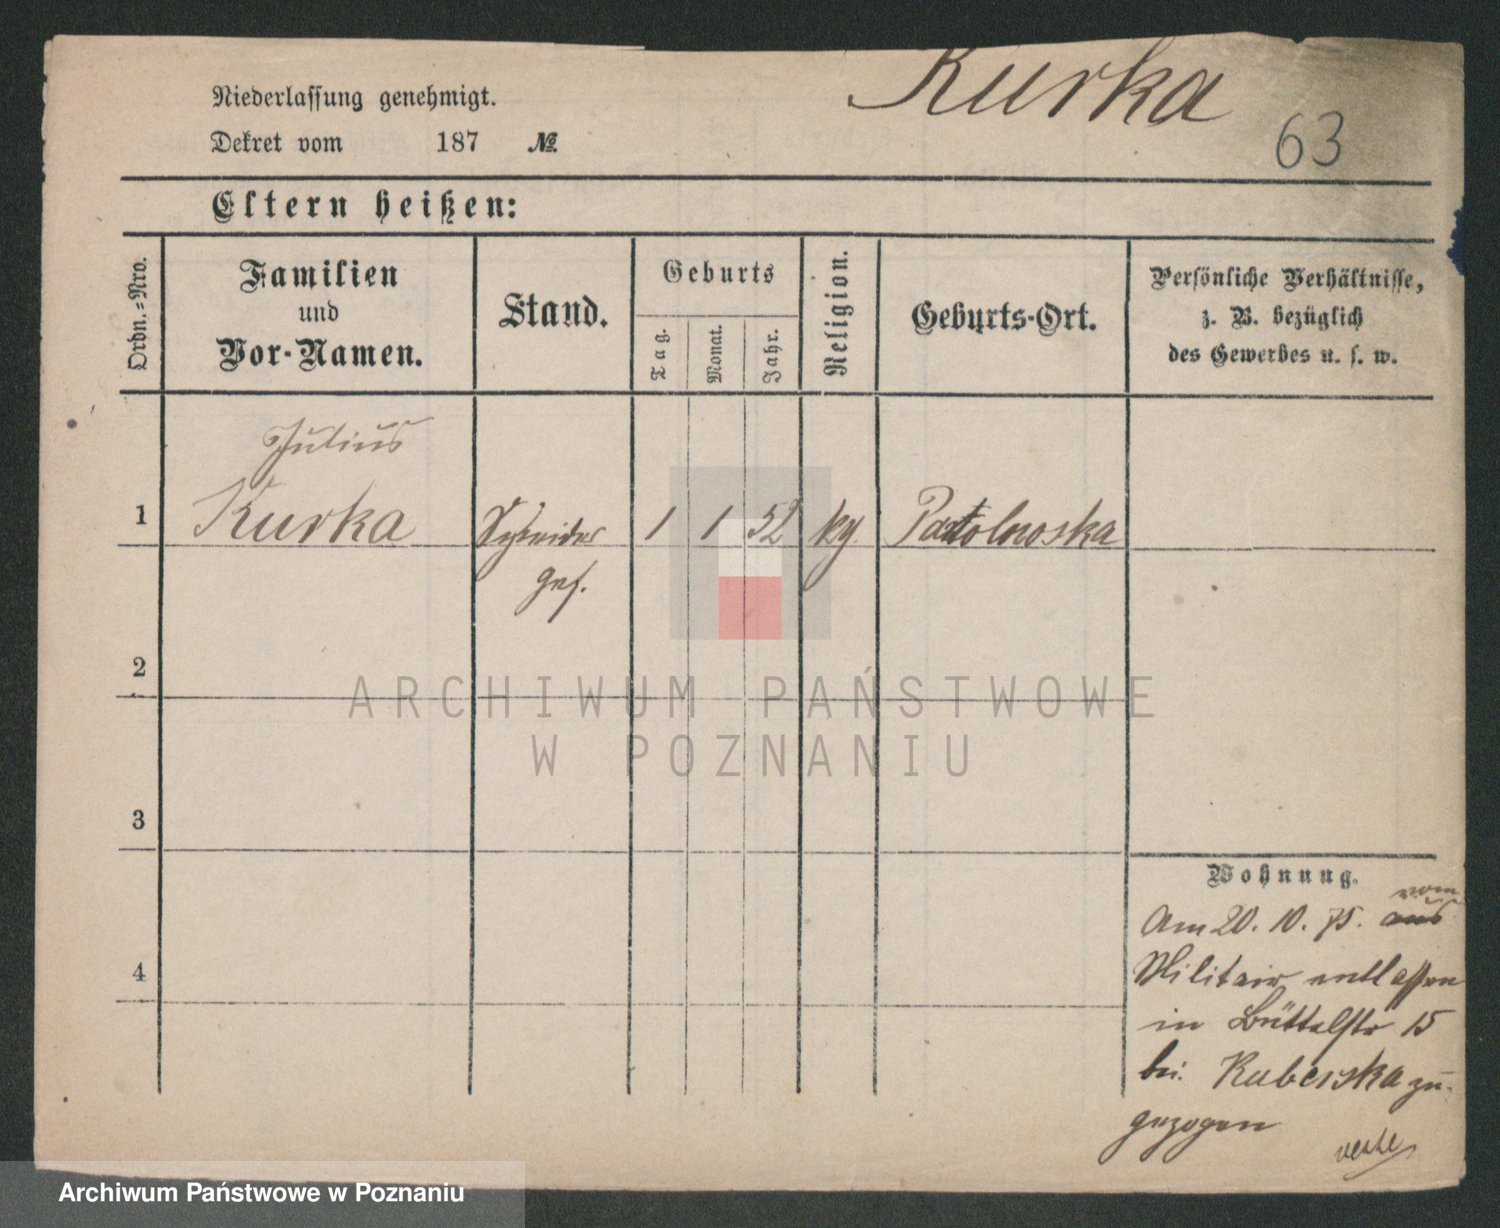 Kurka
63
Niederlassung genehmigt.
Dekret vom 187 №
Eltern heißen:
Ordn.-Nro.
Familien
und
Vor-Namen.
Stand.
Geburts
Tag.
Monat.
Jahr.
Religion.
Geburts-Ort.
Persönliche Verhältnisse,
z. B. bezüglich
des Gewerbes u. s. w.
Julius
1 Kurka Schneider 1 1 52 kg.
ges.
2
3
4
Wohnung.
vom
Am 20. 10. 75. aus
Militair entlassen
in Büttelstr 15
bei Ruberska zu-
gezogen
ARCHIWUM PAŃSTWOWE
W POZNANIU
Archiwum Państwowe w Poznaniu